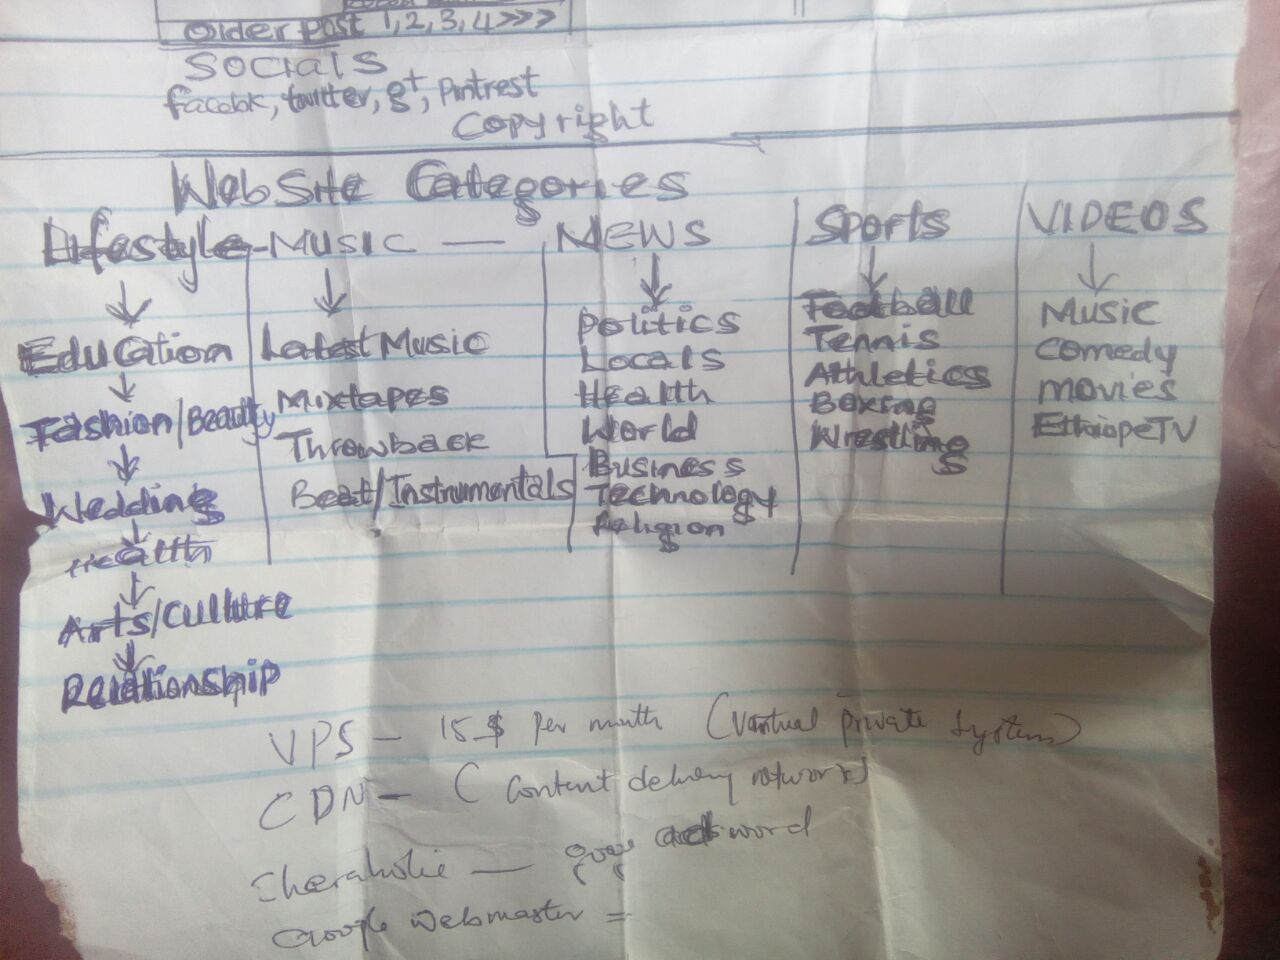 Older post 1, 2, 3, 4 >>>
Socials
facebk, twitter, g+, Pintrest
Copyright
WebSite Categories
Lifestyle - MUSIC — NEWS Sports VIDEOS
Education
Fashion/Beauty
Wedding
Health
Arts/Culture
Relationship
Latest Music
Mixtapes
Throwback
Beat/Instrumentals
Politics
Locals
Health
World
Business
Technology
Religion
Football
Tennis
Athletics
Boxing
Wrestling
Music
Comedy
movies
TV
VPS - 15$ Per month (Virtual private System)
CDN - (Content delivery network)
word
Google Webmaster =